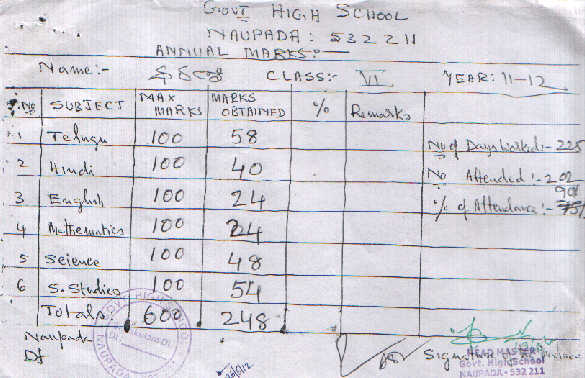 GOVT HIGH SCHOOL
NAUPADA: 532 211
ANNUAL MARKS:-
Name:- CLASS:- VI YEAR: 11-12
S.No SUBJECT MAX MARKS MARKS OBTAINED % Remarks
1 Telugu 100 58
2 Hindi 100 40
3 English 100 24
4 Mathematics 100 24
5 Science 100 48
6 S. Studies 100 54
Totals: 600 248
No of Days Worked:- 225
No Attended:- 202
% of Attendance:- 90%
Naupada
Dt
Signature
HEAD MASTER
Govt. High School
NAUPADA - 532 211